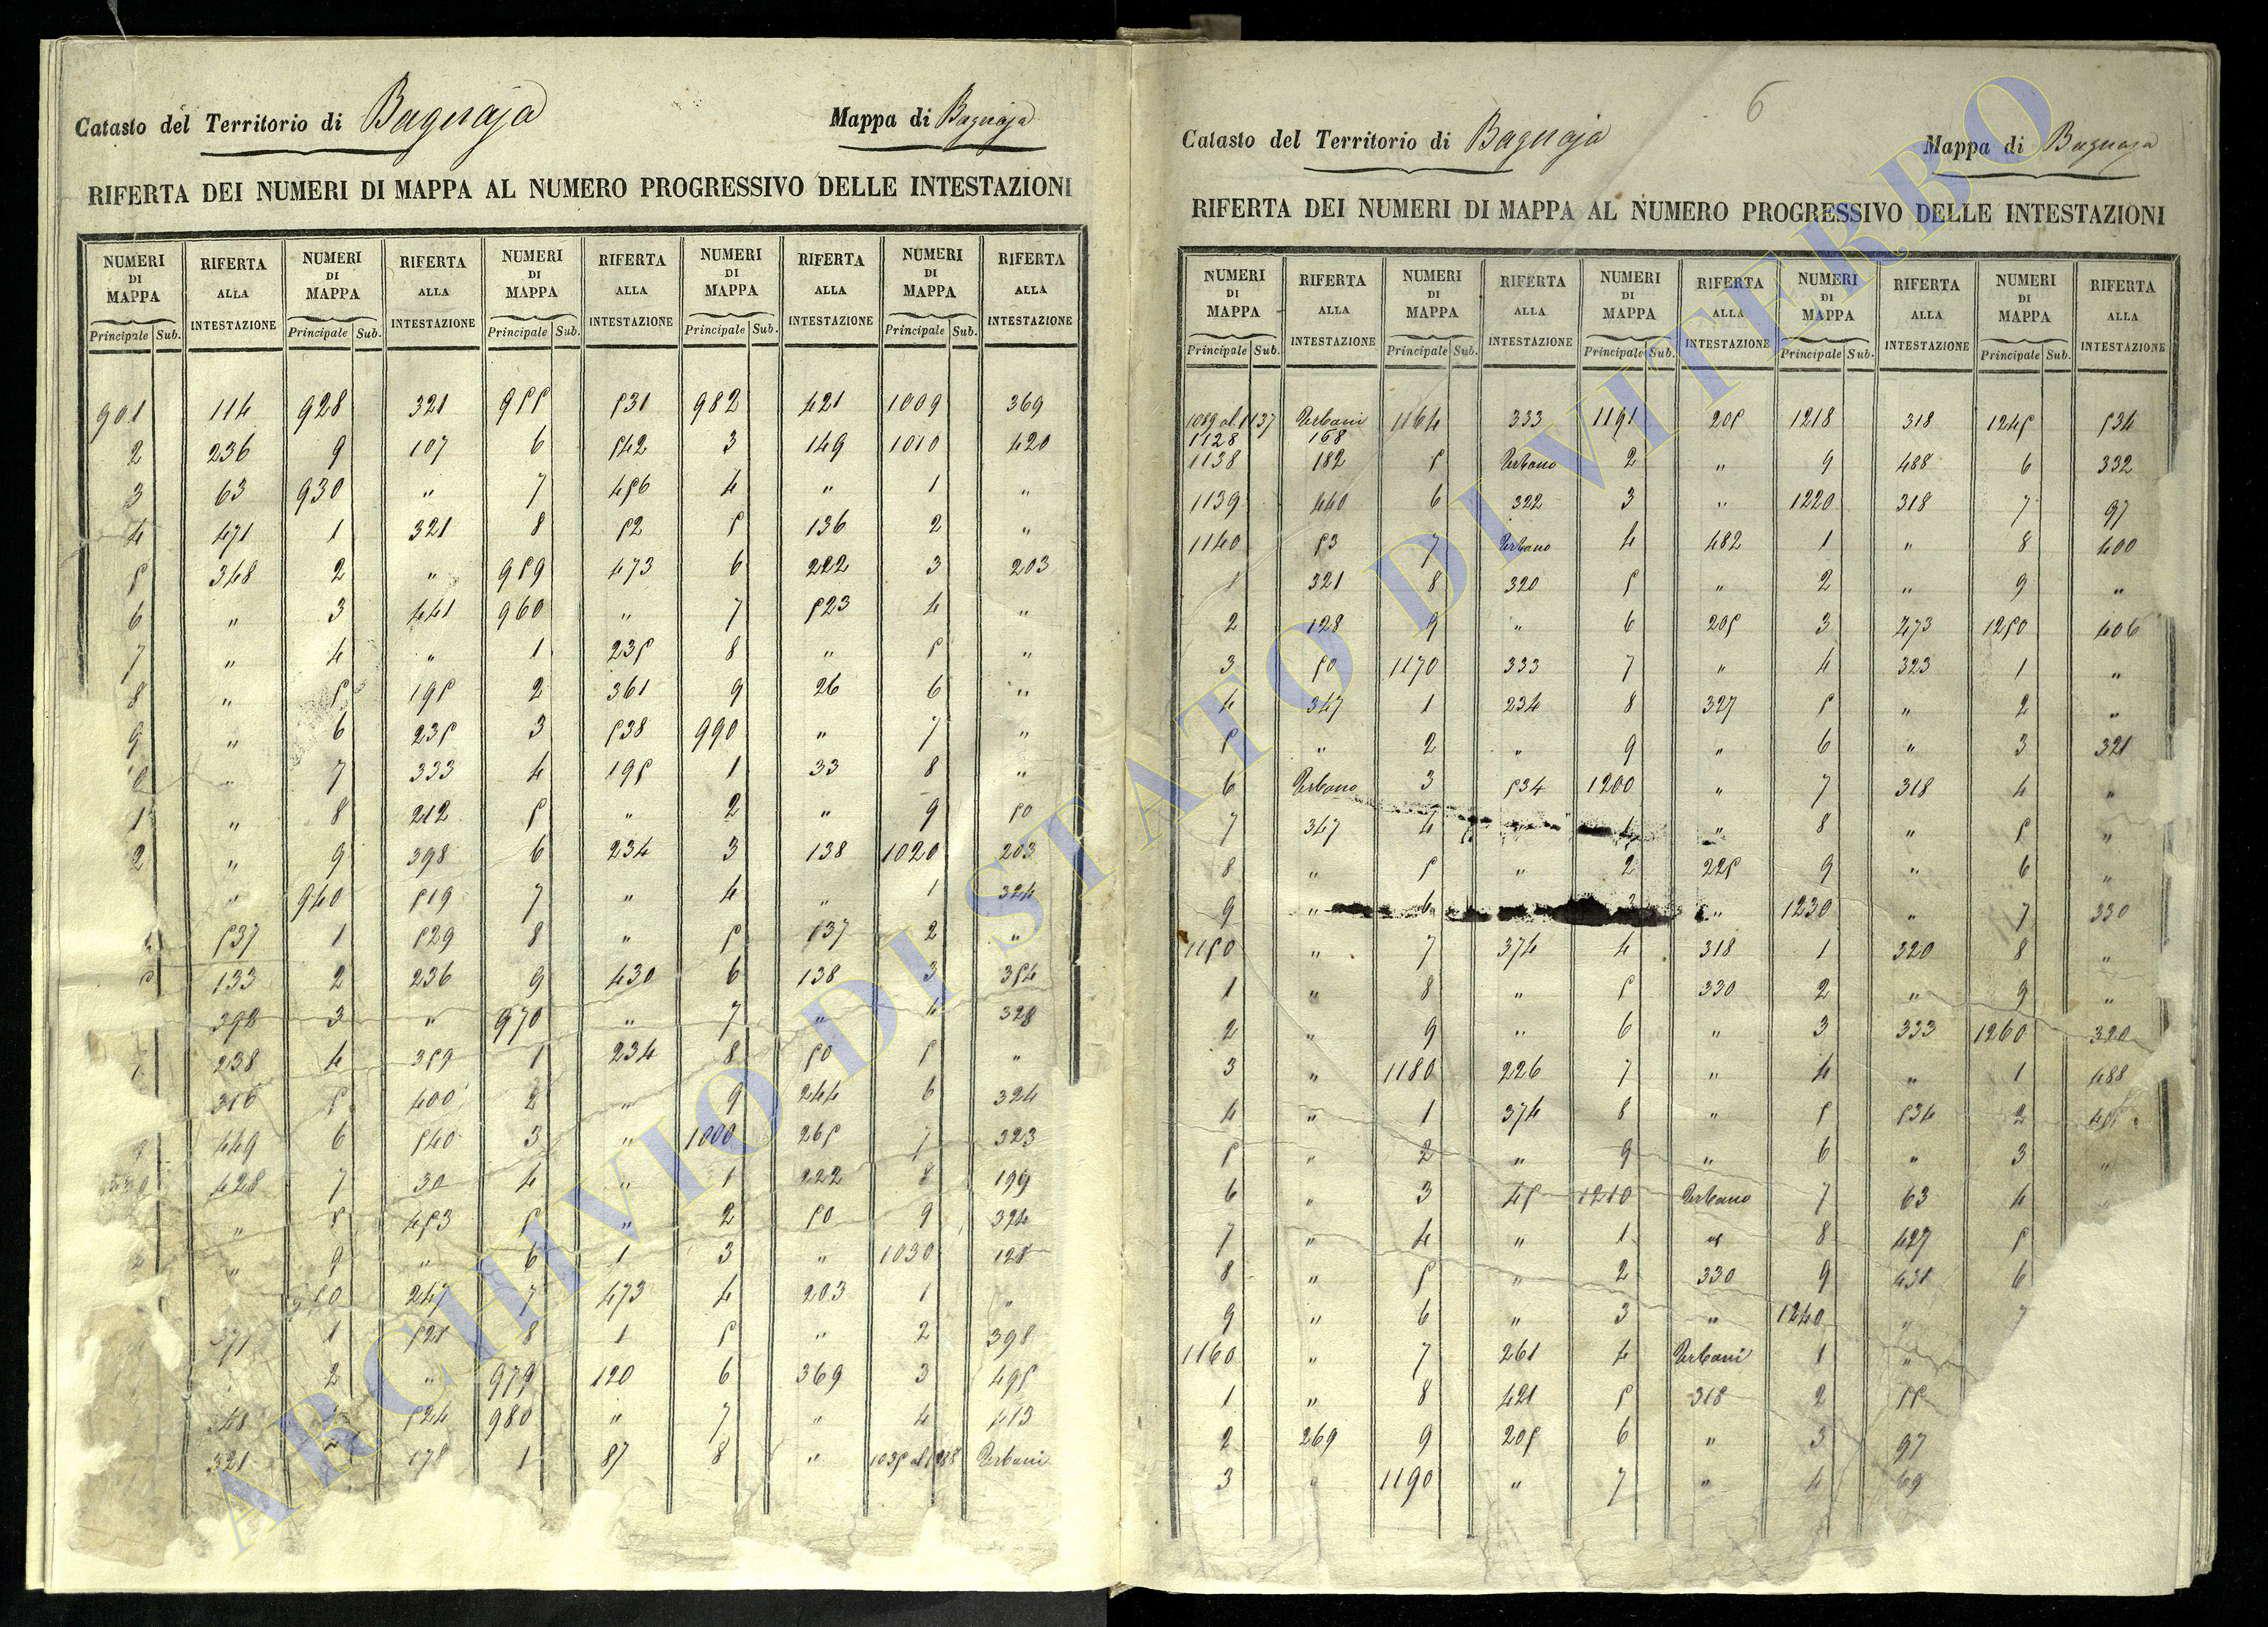 Catasto del Territorio di Bagnaja Mappa di Bagnaja
RIFERTA DEI NUMERI DI MAPPA AL NUMERO PROGRESSIVO DELLE INTESTAZIONI
NUMERI DI MAPPA RIFERTA ALLA INTESTAZIONE NUMERI DI MAPPA RIFERTA ALLA INTESTAZIONE NUMERI DI MAPPA RIFERTA ALLA INTESTAZIONE NUMERI DI MAPPA RIFERTA ALLA INTESTAZIONE NUMERI DI MAPPA RIFERTA ALLA INTESTAZIONE
Principale Sub. Principale Sub. Principale Sub. Principale Sub. Principale Sub.
901 114 928 321 955 531 982 421 1009 369
2 236 9 107 6 542 3 149 1010 420
3 63 930 " 7 456 4 " 1 "
4 471 1 321 8 52 5 136 2 "
5 348 2 " 959 473 6 222 3 203
6 " 3 441 960 " 7 523 4 "
7 " 4 " 1 235 8 " 5 "
8 " 5 195 2 361 9 26 6 "
9 " 6 235 3 538 990 " 7 "
0 " 7 333 4 195 1 33 8 "
1 " 8 212 5 " 2 " 9 50
2 " 9 398 6 234 3 138 1020 203
" 940 519 7 " 4 " 1 324
537 1 529 8 " 5 537 2 "
133 2 236 9 430 6 138 3 354
3 " 970 " 7 " 4 328
7 238 4 359 1 234 8 50 5 "
316 5 400 2 " 9 244 6 324
9 449 6 540 3 " 1000 265 7 323
428 7 30 4 " 1 222 8 199
" 8 453 5 " 2 50 9 324
2 " 9 " 6 1 3 " 1030 128
247 7 473 4 203 1 "
371 1 521 8 1 5 " 2 398
2 " 979 120 6 369 3 495
48 524 980 " 7 " 4 413
321 178 1 87 8 " 1035 al 1088 Urbani
6
Catasto del Territorio di Bagnaja Mappa di Bagnaja
RIFERTA DEI NUMERI DI MAPPA AL NUMERO PROGRESSIVO DELLE INTESTAZIONI
NUMERI DI MAPPA RIFERTA ALLA INTESTAZIONE NUMERI DI MAPPA RIFERTA ALLA INTESTAZIONE NUMERI DI MAPPA RIFERTA ALLA INTESTAZIONE NUMERI DI MAPPA RIFERTA ALLA INTESTAZIONE NUMERI DI MAPPA RIFERTA ALLA INTESTAZIONE
Principale Sub. Principale Sub. Principale Sub. Principale Sub. Principale Sub.
1089 al 1137 Urbani 1164 333 1191 205 1218 318 1245 534
1128 168
1138 182 5 Urbano 2 " 9 488 6 332
1139 440 6 322 3 " 1220 318 7 97
1140 53 7 Urbano 4 482 1 " 8 400
1 321 8 320 5 " 2 " 9 "
2 128 9 " 6 205 3 473 1250 406
3 50 1170 333 7 " 4 323 1 "
4 347 1 234 8 327 5 " 2 "
5 " 2 " 9 " 6 " 3 321
6 Urbano 3 534 1200 " 7 318 4 "
7 347 4 " 1 " 8 " 5 "
8 " 5 " 2 225 9 " 6 "
9 " 6 3 " 1230 " 7 330
1150 " 7 374 4 318 1 320 8 "
1 " 8 " 5 330 2 " 9 "
2 " 9 " 6 " 3 333 1260 320
3 " 1180 226 7 " 4 " 1 488
4 " 1 374 8 " 5 534 2
5 " 2 " 9 " 6 " 3 "
6 " 3 45 1210 Urbano 7 63 4
7 " 4 " 1 " 8 427 5
8 " 5 " 2 330 9 431 6
9 " 6 " 3 " 1240 " 7
1160 " 7 261 4 Urbani 1 "
1 " 8 421 5 318 2 55
2 269 9 205 6 " 3 97
3 " 1190 " 7 " 4 69
ARCHIVIO DI STATO DI VITERBO